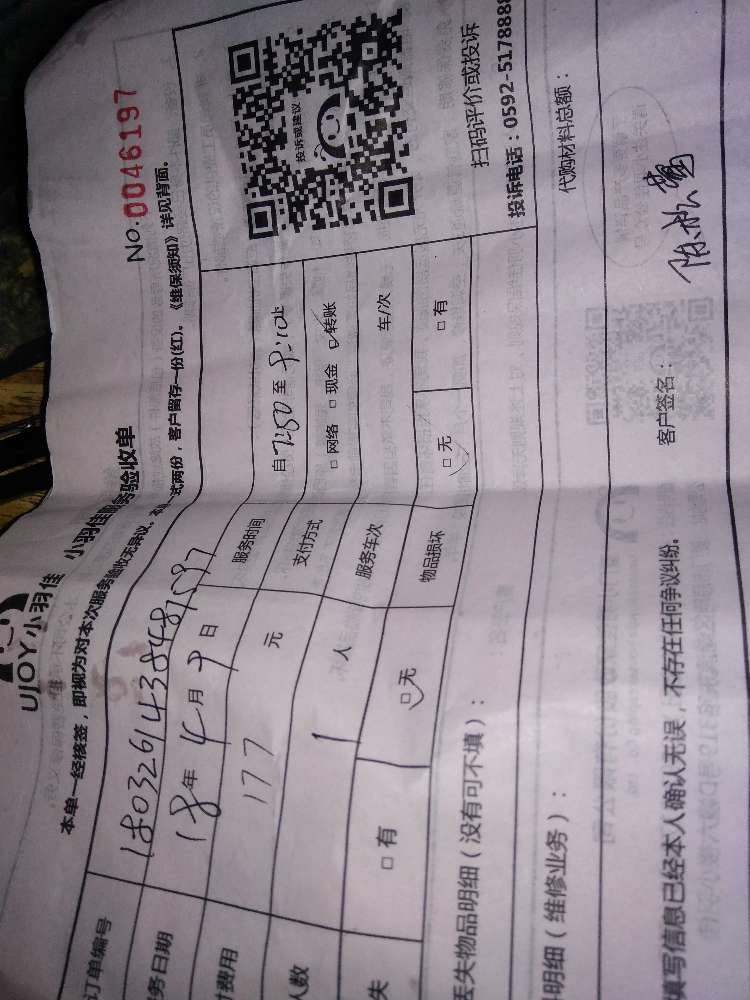 UJOY小羽佳 小羽佳服务验收单
NO.0046197
本单一经核签，即视为对本次服务验收无异议。本单一式两份，客户留存一份(红)。《维保须知》详见背面。
订单编号 1803261438481597
务日期 18年4月9日 服务时间 自7:50至9:10止
费用 177元 支付方式 □网络 □现金 ☑转账
人数 1人 服务车次 车/次
失 □有 ☑无 物品损坏 ☑无 □有
投诉或建议
扫码评价或投诉
投诉电话：0592-5178888
丢失物品明细（没有可不填）：
明细（维修业务）： 代购材料总额：
填写信息已经本人确认无误，不存在任何争议纠纷。 客户签名：